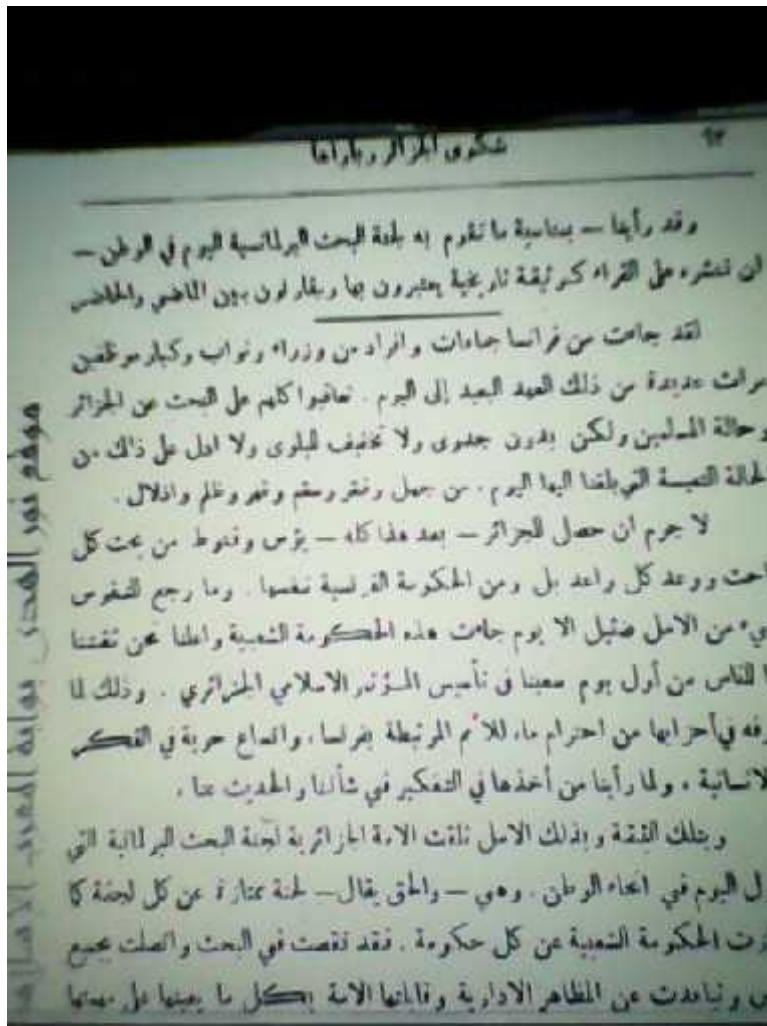 ٩٢ شكوى الجزائر وباراها
وقد رأينا — بمناسبة ما تقوم به لجنة البحث البرلمانية اليوم في الوطن —
ان ننشره على القراء كوثيقة تاريخية يعتبرون بها ويقارنون بين الماضي والحاضر
لقد جاءت من فرانسا جماعات وافراد من وزراء ونواب وكبار موظفين
مرات عديدة من ذلك العهد البعيد إلى اليوم . تعاقبوا كلهم على البحث عن الجزائر
وحالة المسلمين ولكن بدون جدوى ولا تخفيف للبلوى ولا ادل على ذلك من
لحالة التعيسة التي بلغنا اليها اليوم ، من جهل وفقر وسقم وقهر وظلم واذلال .
لا جرم ان حصل للجزائر — بعد هذا كله — يؤس وقنوط من بحث كل
احث ووعد كل واعد بل ومن الحكومة الفرنسية نفسها . وما رجع للنفوس
يء من الامل ضئيل الا يوم جاءت هذه الحكومة الشعبية واعلنا نحن ثقتنا
ا للناس من أول يوم سعينا في تأسيس المؤتمر الاسلامي الجزائري . وذلك لما
رفه في أحزابها من احترام ما، للأمم المرتبطة بفرنسا، واتساع حرية في الفكر
لانسانية ، ولما رأينا من أخذها في التفكير في شأننا والحديث عنا .
وبتلك الثقة وبذلك الامل تلقت الامة الجزائرية لجنة البحث البرلمانية التي
ل اليوم في انحاء الوطن . وهي — والحق يقال — لجنة ممتازة عن كل لجنة كا
زت الحكومة الشعبية عن كل حكومة . فقد تقصت في البحث واتصلت بجميع
س وتباعدت عن المظاهر الادارية وقابلتها الامة بكل ما يعينها على مهمتها
موقع نور الهدى بوابة المغرب